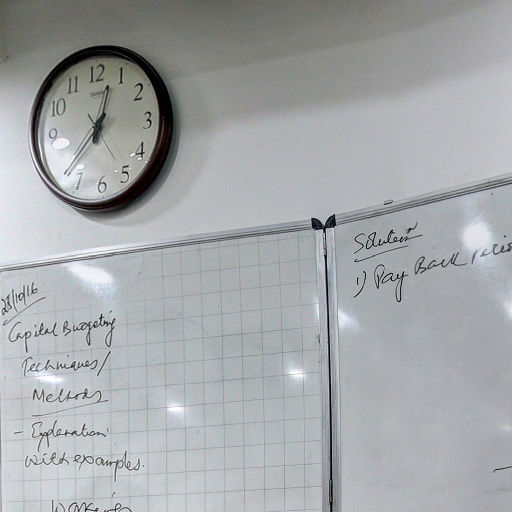 12
1
2
3
4
5
6
7
9
10
11
28/10/16
Capital Budgeting
Techniques/
Methods
- Explanation
with examples.
Solution
1) Pay Back